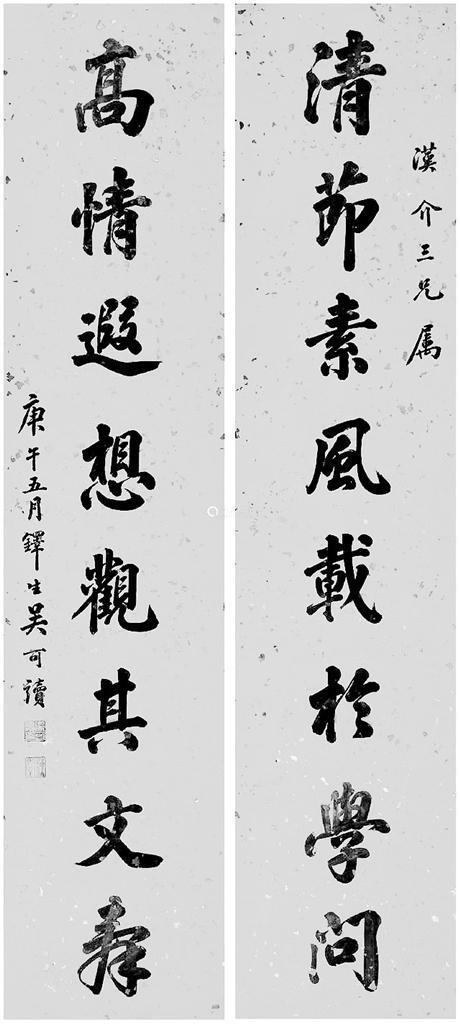 漢介三兄属
清節素風載於學問
高情遐想觀其文辭
庚午五月鐸生吴可讀